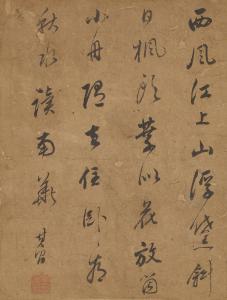 西風江上山浮黛斜
日楓葉似花放箇
小舟隨去住臥看
秋水讀南華 其昌